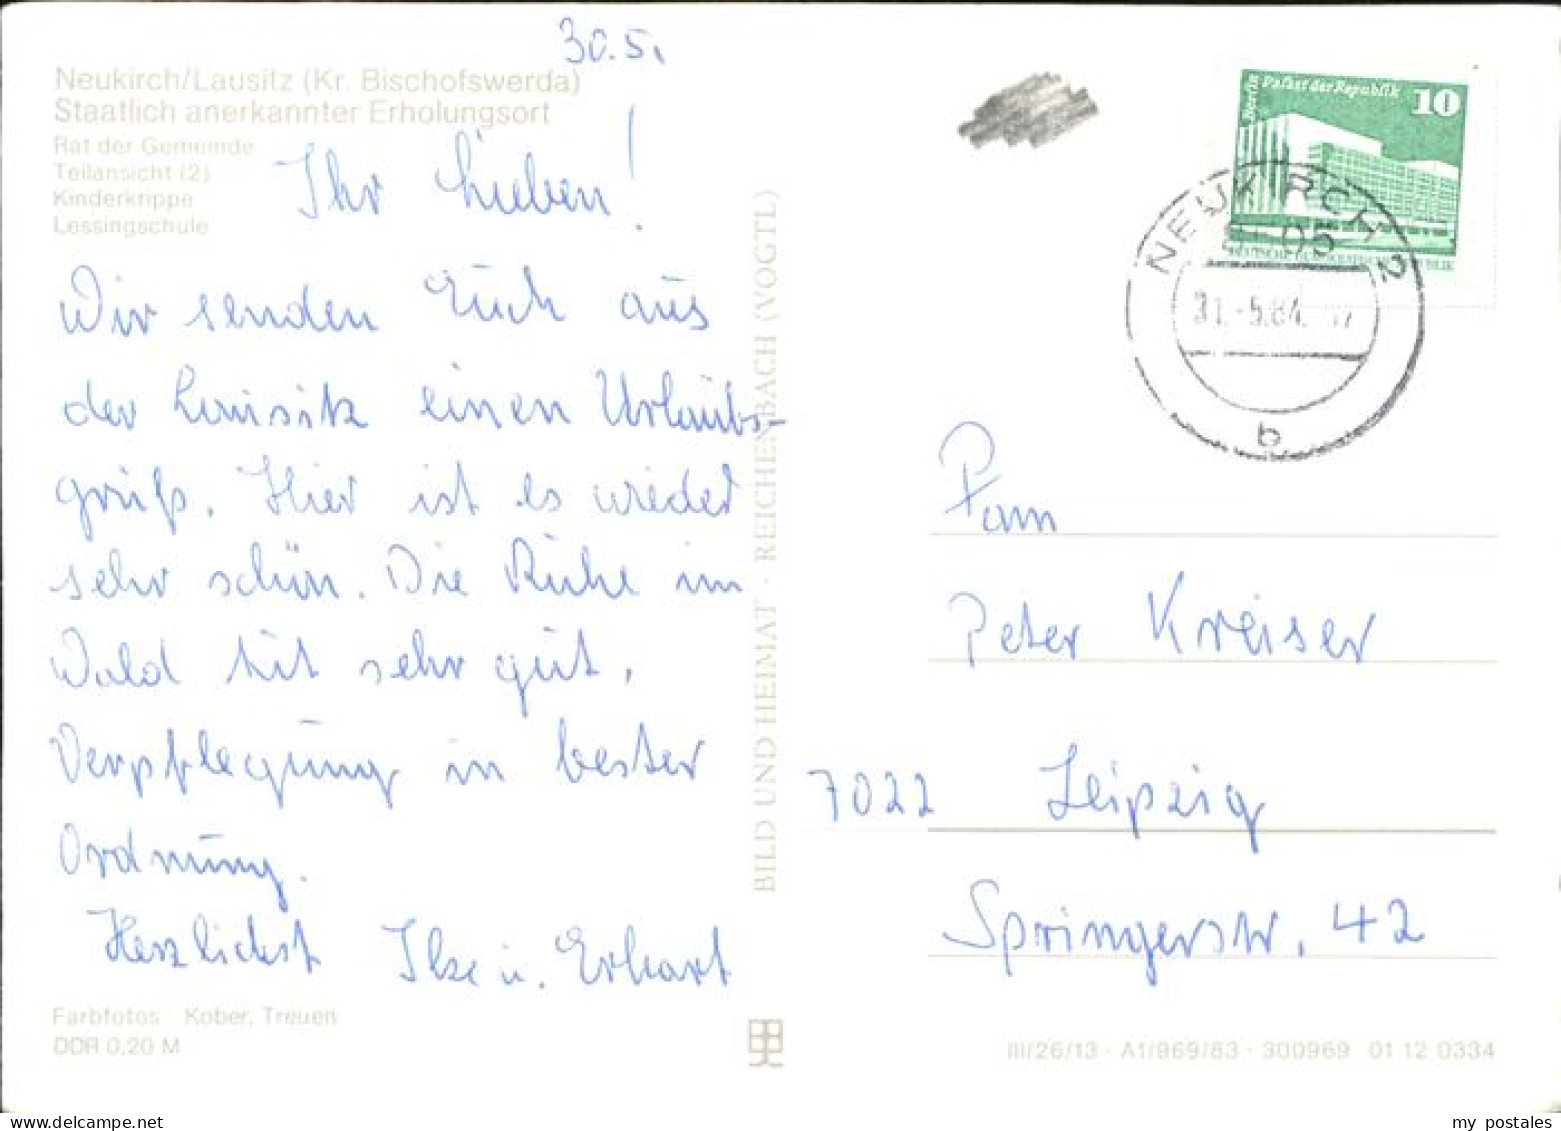 30.5.
Neukirch/Lausitz (Kr. Bischofswerda)
Staatlich anerkannter Erholungsort
Rat der Gemeinde
Teilansicht (2)
Kinderkrippe
Lessingschule
Ihr Lieben!
Wir senden Euch aus
der Lausitz einen Urlaubs-
gruß. Hier ist es wieder
sehr schön. Die Ruhe im
Wald tut sehr gut,
Verpflegung in bester
Ordnung.
Herzlichst Ilse u. Erhart
Farbfotos: Kober, Treuen
DDR 0,20 M
BILD UND HEIMAT · REICHENBACH (VOGTL)
Berlin Palast der Republik
10
DEUTSCHE DEMOKRATISCHE REPUBLIK
NEUKIRCH 2
8505
31.-5.84.
b
Fam
Peter Kreiser
7022 Leipzig
Springerstr. 42
III/26/13 · A1/969/83 · 300969 01 12 0334
my postales